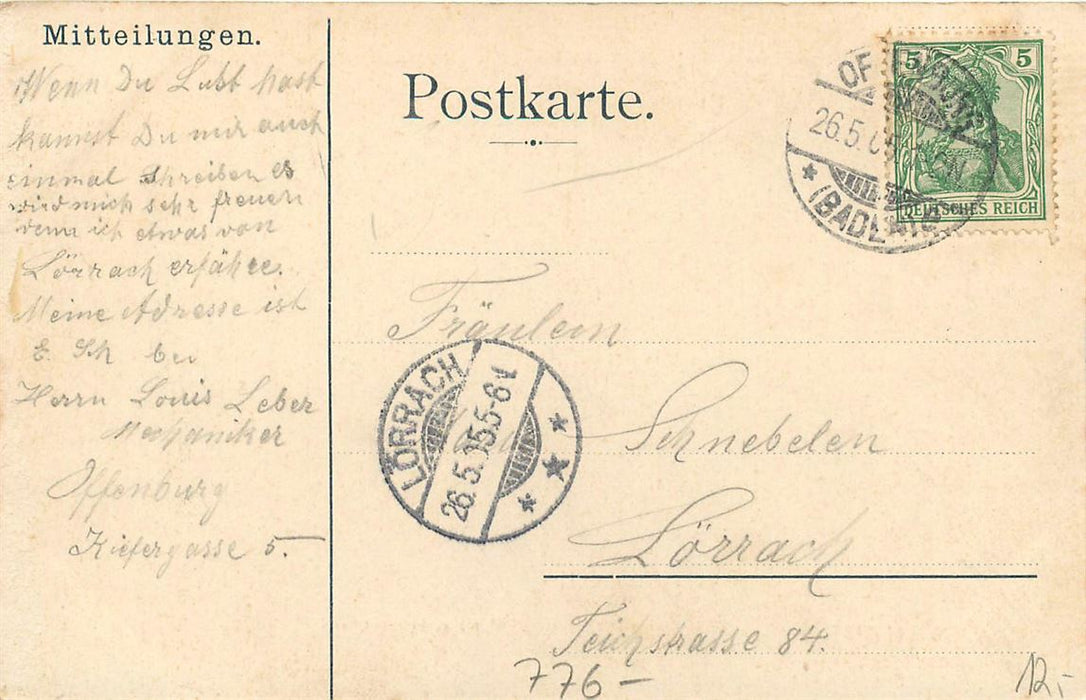 Mitteilungen.
Wenn Du Lust hast
kannst Du mir auch
einmal schreiben es
wird mich sehr freuen
wenn ich etwas von
Lörrach erfahre.
Meine Adresse ist
E. Sch bei
Herrn Louis Leber
Mechaniker
Offenburg
Kiefergasse 5.
Postkarte.
5 5
DEUTSCHES REICH
26.5.
(BADEN)
Fräulein
Schnebelen
Lörrach
Teichstrasse 84.
LÖRRACH
26.5.05.5-6N
776-
12,-